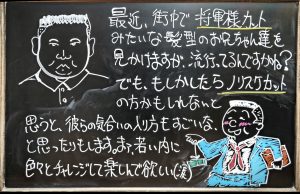 最近、街中で将軍様カット
みたいな髪型のお兄ちゃん達を
見かけますが、流行ってるんですかね?
でも、もしかしたらノリスケカット
の方かもしれないと
思うと、彼らの気合いの入り方もすごいな、
と思ったりもします。まぁ若い内に
色々とチャレンジして楽しんで欲しい(笑)